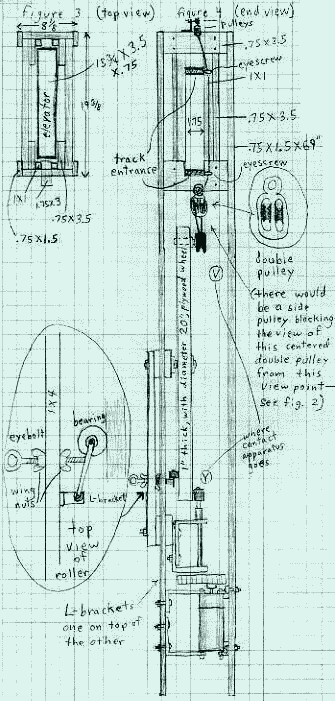 figure 3 (top view)
8 5/8
15 3/4 X 3.5
X .75
elevator
19 5/8
1X1
.75X3
.75X3.5
.75X1.5
figure 4 (end view)
pulleys
.75X3.5
eyescrew
1X1
1.75
.75X3.5
.75X1.5X69"
track
entrance
eyescrew
double
pulley
(there would
be a side
pulley blocking
the view of
this centered
double pulley
from this
view point—
see fig. 2)
V
1" thick, with diameter 20", plywood wheel
where
contact
apparatus
goes
Y
1X4
bearing
eyebolt
wing
nuts
L-bracket
top
view
of
roller
L-brackets
one on top of
the other